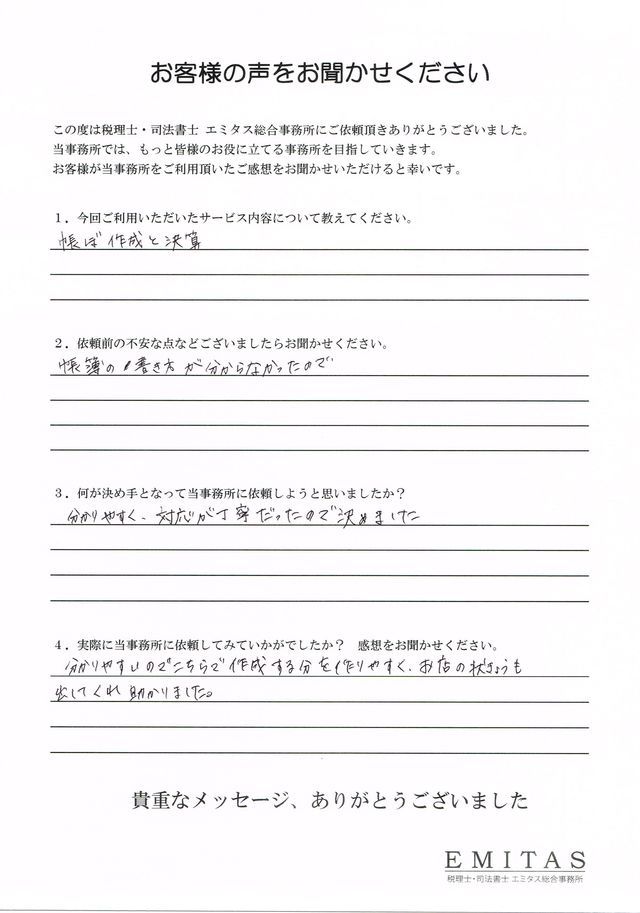 お客様の声をお聞かせください
この度は税理士・司法書士 エミタス総合事務所にご依頼頂きありがとうございました。
当事務所では、もっと皆様のお役に立てる事務所を目指していきます。
お客様が当事務所をご利用頂いたご感想をお聞かせいただけると幸いです。
1．今回ご利用いただいたサービス内容について教えてください。
帳ぼ作成と決算
2．依頼前の不安な点などございましたらお聞かせください。
帳簿の書き方が分からなかったので
3．何が決め手となって当事務所に依頼しようと思いましたか？
分かりやすく、対応が丁寧だったので決めました
4．実際に当事務所に依頼してみていかがでしたか？ 感想をお聞かせください。
分かりやすいのでこちらで作成する分を作りやすく、お店の状きょうも
出してくれ助かりました。
貴重なメッセージ、ありがとうございました
EMITAS
税理士・司法書士 エミタス総合事務所